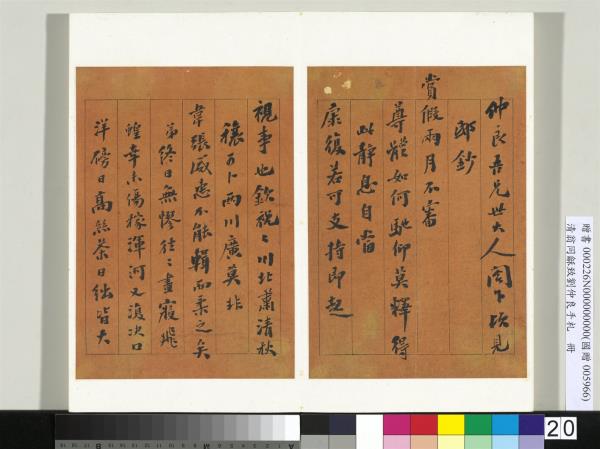 仲良吾兄世大人閣下頃見
邸鈔
賞假兩月不審
尊體如何馳仰莫釋得
此靜息自當
康復若可支持即起
視事也欽祝〻川北蕭清秋
穰可卜兩川廣莫非
韋張威惠不能輯而柔之矣
弟終日無憀往〻晝寢飛
蝗幸未傷稼渾河又復決口
洋磅日高絲茶日絀皆大
贈書 000226N000000000(國贈 005966)
清翁同龢致劉仲良手札 冊
20